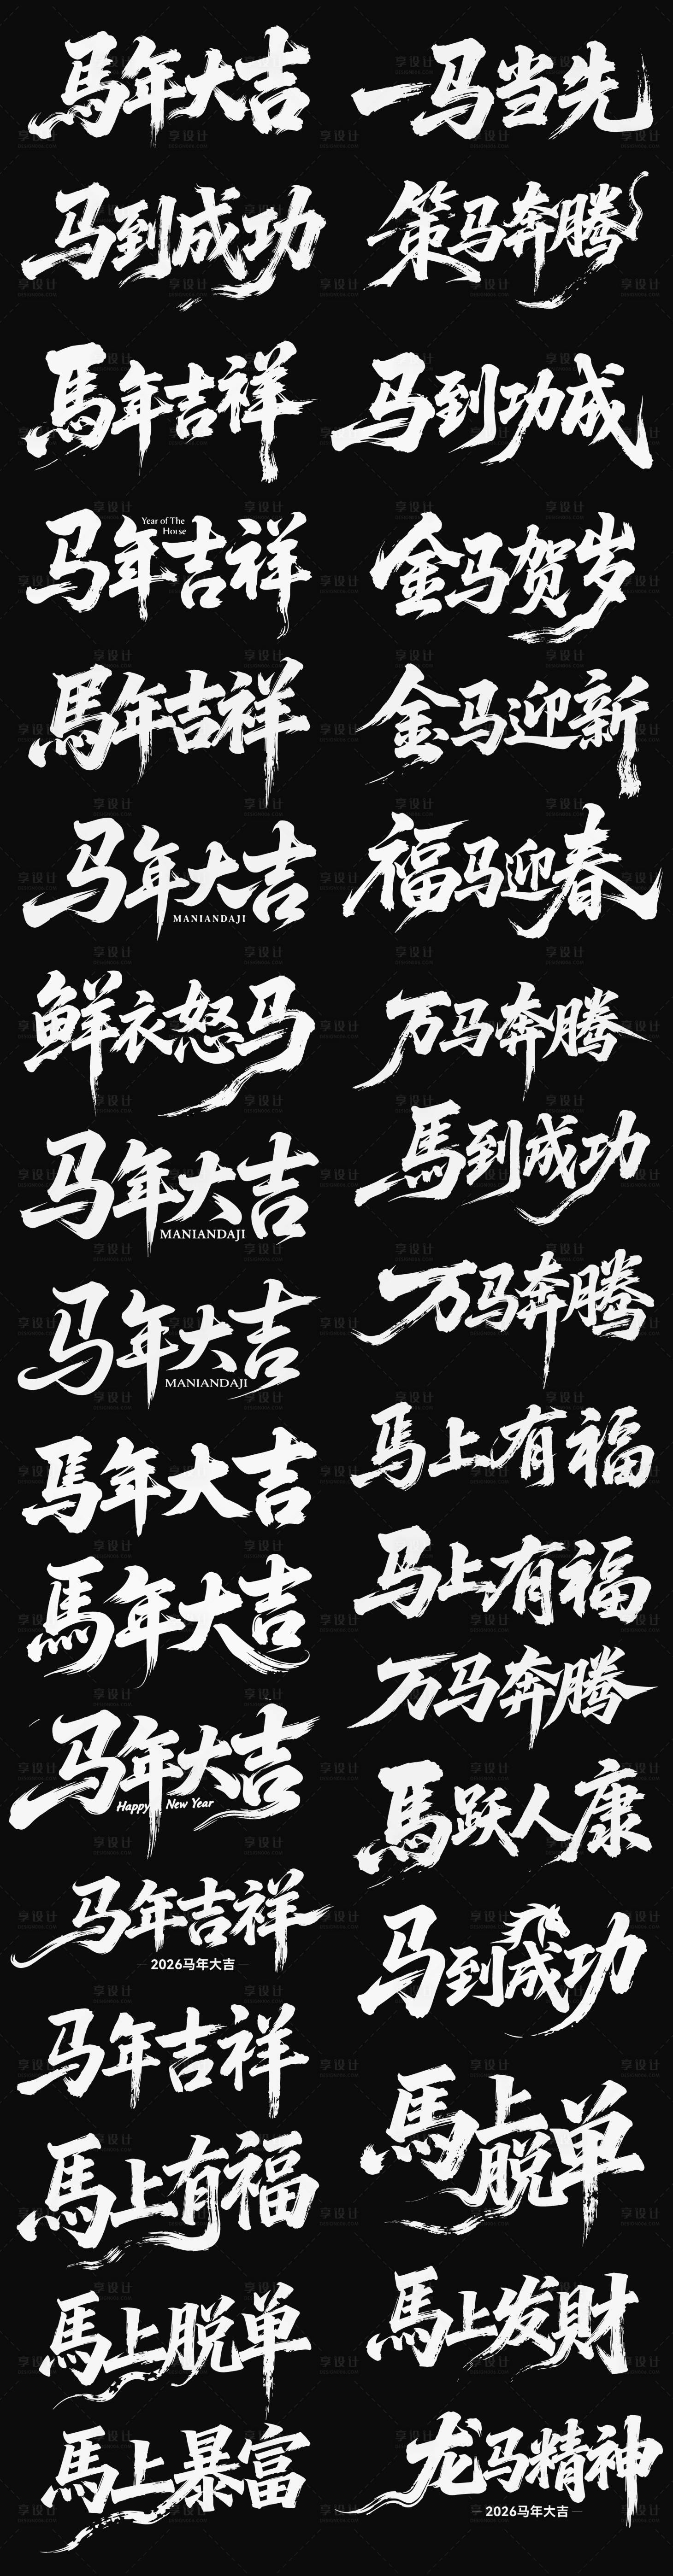 馬年大吉
一马当先
马到成功
策马奔腾
馬年吉祥
马到功成
马年吉祥
Year of The
Horse
金马贺岁
馬年吉祥
金马迎新
马年大吉
MANIANDAJI
福马迎春
鲜衣怒马
万马奔腾
马年大吉
MANIANDAJI
馬到成功
马年大吉
MANIANDAJI
万马奔腾
馬年大吉
马上有福
馬年大吉
马上有福
马年大吉
Happy New Year
万马奔腾
马年吉祥
2026马年大吉
馬跃人康
马年吉祥
马到成功
馬上有福
馬上脱单
馬上脱单
馬上发財
馬上暴富
龙马精神
2026马年大吉
享设计
DESIGN006.COM